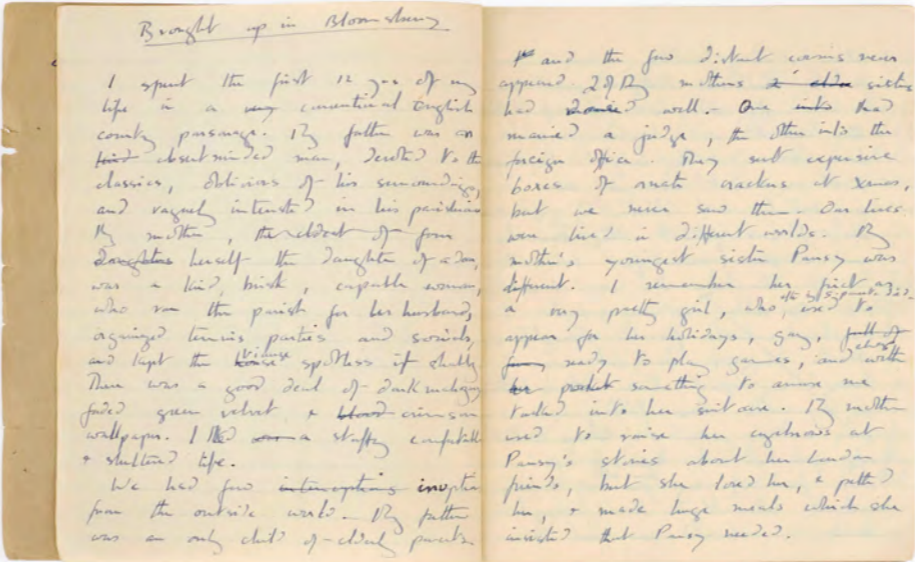 Brought up in Bloomsbury
I spent the first 12 yrs of my
life in a very conventional English
country parsonage. My father was an
kind absent minded man, devoted to the
classics, oblivious of his surroundings,
and vaguely interested in his parishioners
My mother, the eldest of four
daughters herself the daughter of a dean,
was a kind, brisk, capable woman,
who ran the parish for her husband,
organized tennis parties and socials,
and kept the house vicarage spotless if shabby
There was a good deal of dark mahogany
faded green velvet & blood crimson
wallpaper. I led a stuffy comfortable
& sheltered life.
We had few interruptions irruptions
from the outside world. My father
was an only child of elderly parents
and the few distant cousins never
appeared. 2 of my mothers elder sisters
had married well. One into had
married a judge, the other into the
foreign office. They sent expensive
boxes of ornate crackers at Xmas,
but we never saw them. Our lives
were lived in different worlds. My
mother's youngest sister Pansy was
different. I remember her first as
a very pretty girl, who used to
appear for her holidays, gay, full of
fun ready to play games, and with
her pocket something to amuse me
tucked into her suitcase. My mother
used to raise her eyebrows at
Pansy's stories about her London
friends, but she loved her, & petted
her, & made huge meals which she
insisted that Pansy needed.